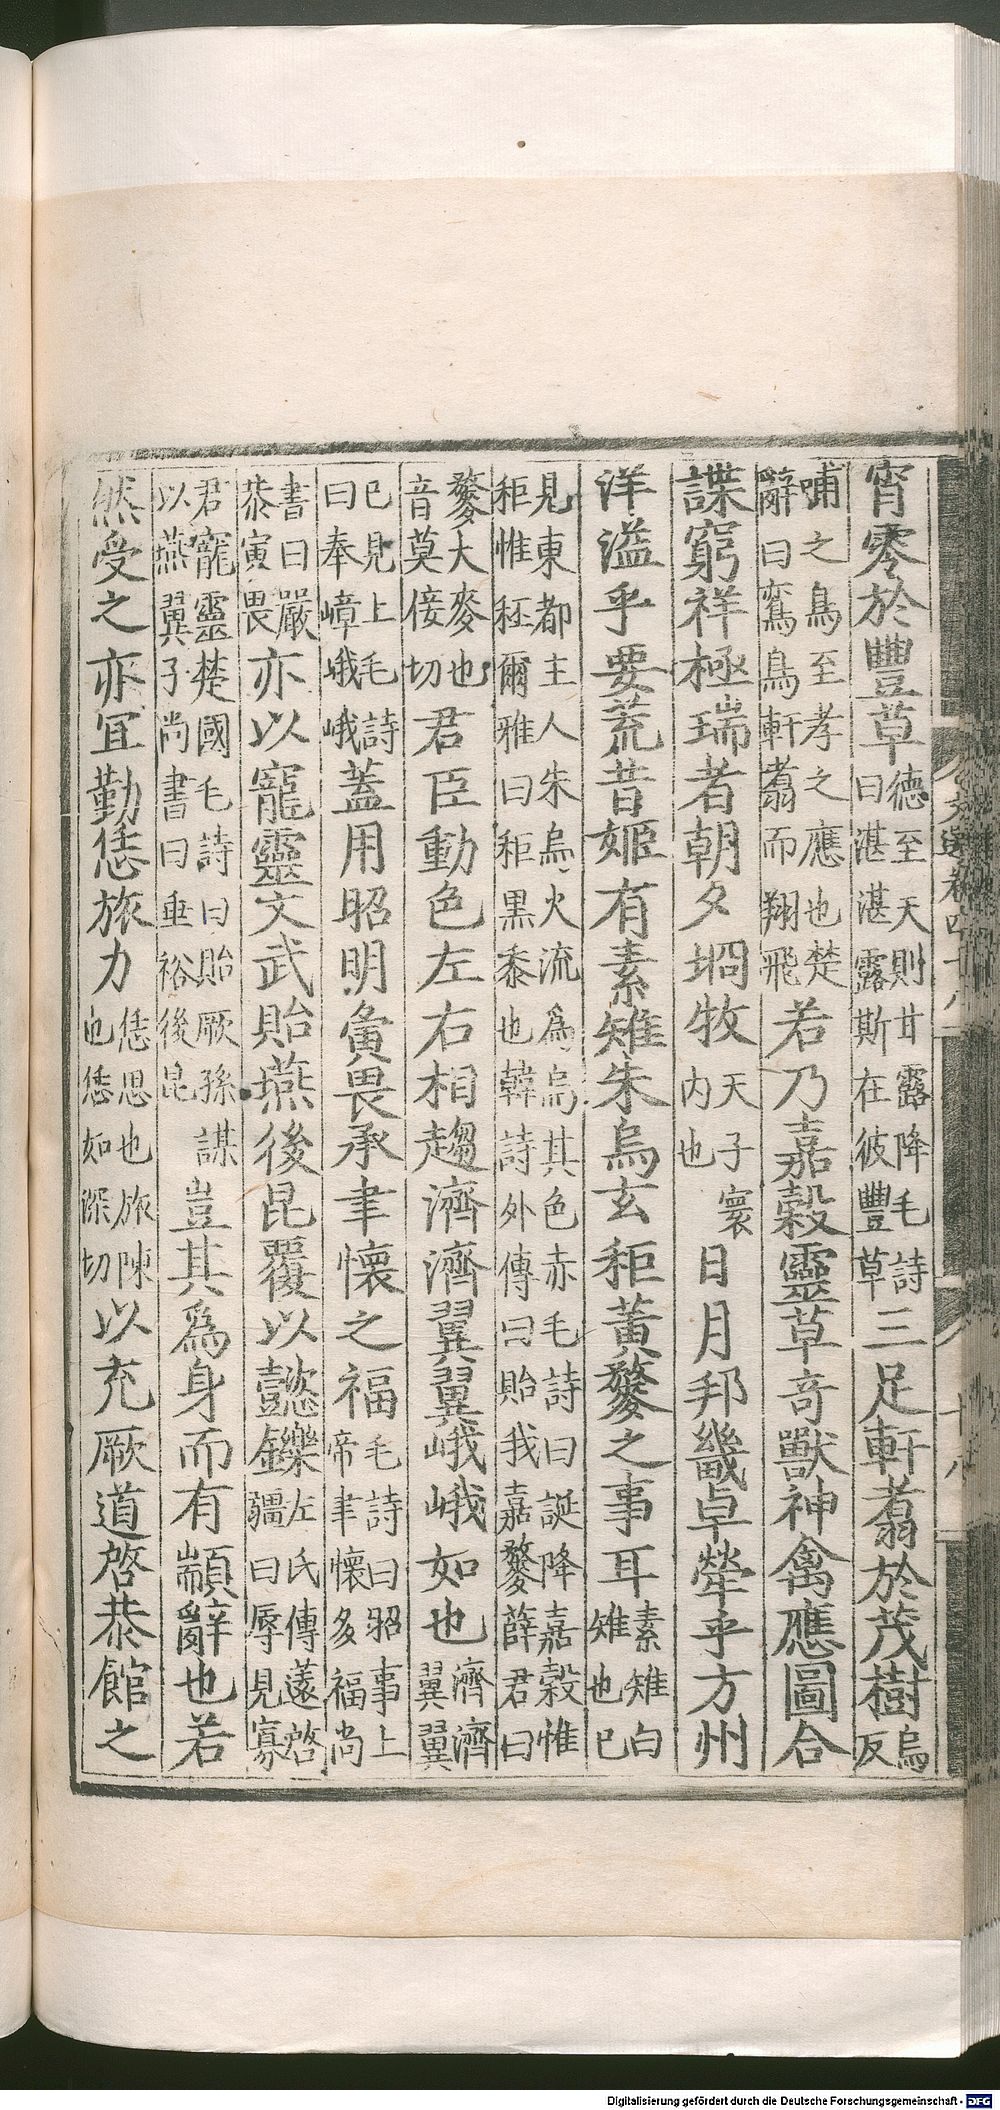 宵零於豐草德至天則甘露降毛詩曰湛湛露斯在彼豐草三足軒翥於茂樹烏反
哺之鳥至孝之應也楚辭曰鸞鳥軒翥而翔飛若乃嘉穀靈草奇獸神禽應圖合
諜窮祥極瑞者朝夕坰牧天子寰内也日月邦畿卓犖乎方州
洋溢乎要荒昔姬有素雉朱烏玄秬黃䅘之事耳素雉白雉也已
見東都主人朱烏火流爲烏其色赤毛詩曰誕降嘉穀惟秬惟秠爾雅曰秬黑黍也韓詩外傳曰貽我嘉䅘薛君曰
䅘大麥也音莫侯切君臣動色左右相趨濟濟翼翼峨峨如也濟濟翼翼
已見上毛詩曰奉嶂峨峨蓋用昭明寅畏承聿懷之福毛詩曰昭事上帝聿懷多福尚
書曰嚴恭寅畏亦以寵靈文武貽燕後昆覆以懿鑠左氏傳薳啓疆曰辱見寡
君寵靈楚國毛詩曰貽厥孫謀以燕翼子尚書曰垂裕後昆豈其爲身而有顓辭也若
然受之亦宜勤恁旅力恁思也旅陳也恁如深切以充厥道啓恭館之
文選卷四十八
十八
Digitalisierung gefördert durch die Deutsche Forschungsgemeinschaft - DFG